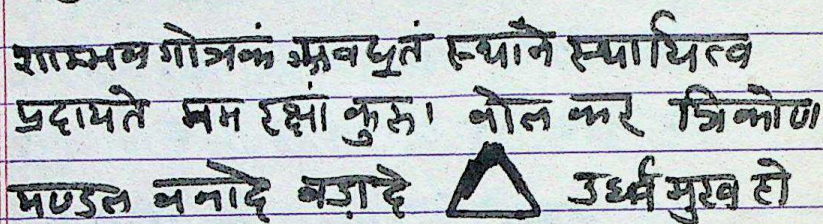 शाम्भव गोत्रकं अवधूतं स्थाने स्थायित्व
प्रदायते मम रक्षां कुरू। बोल कर त्रिकोण
मण्डल बनादे बड़ादे उर्ध्व मुख हो